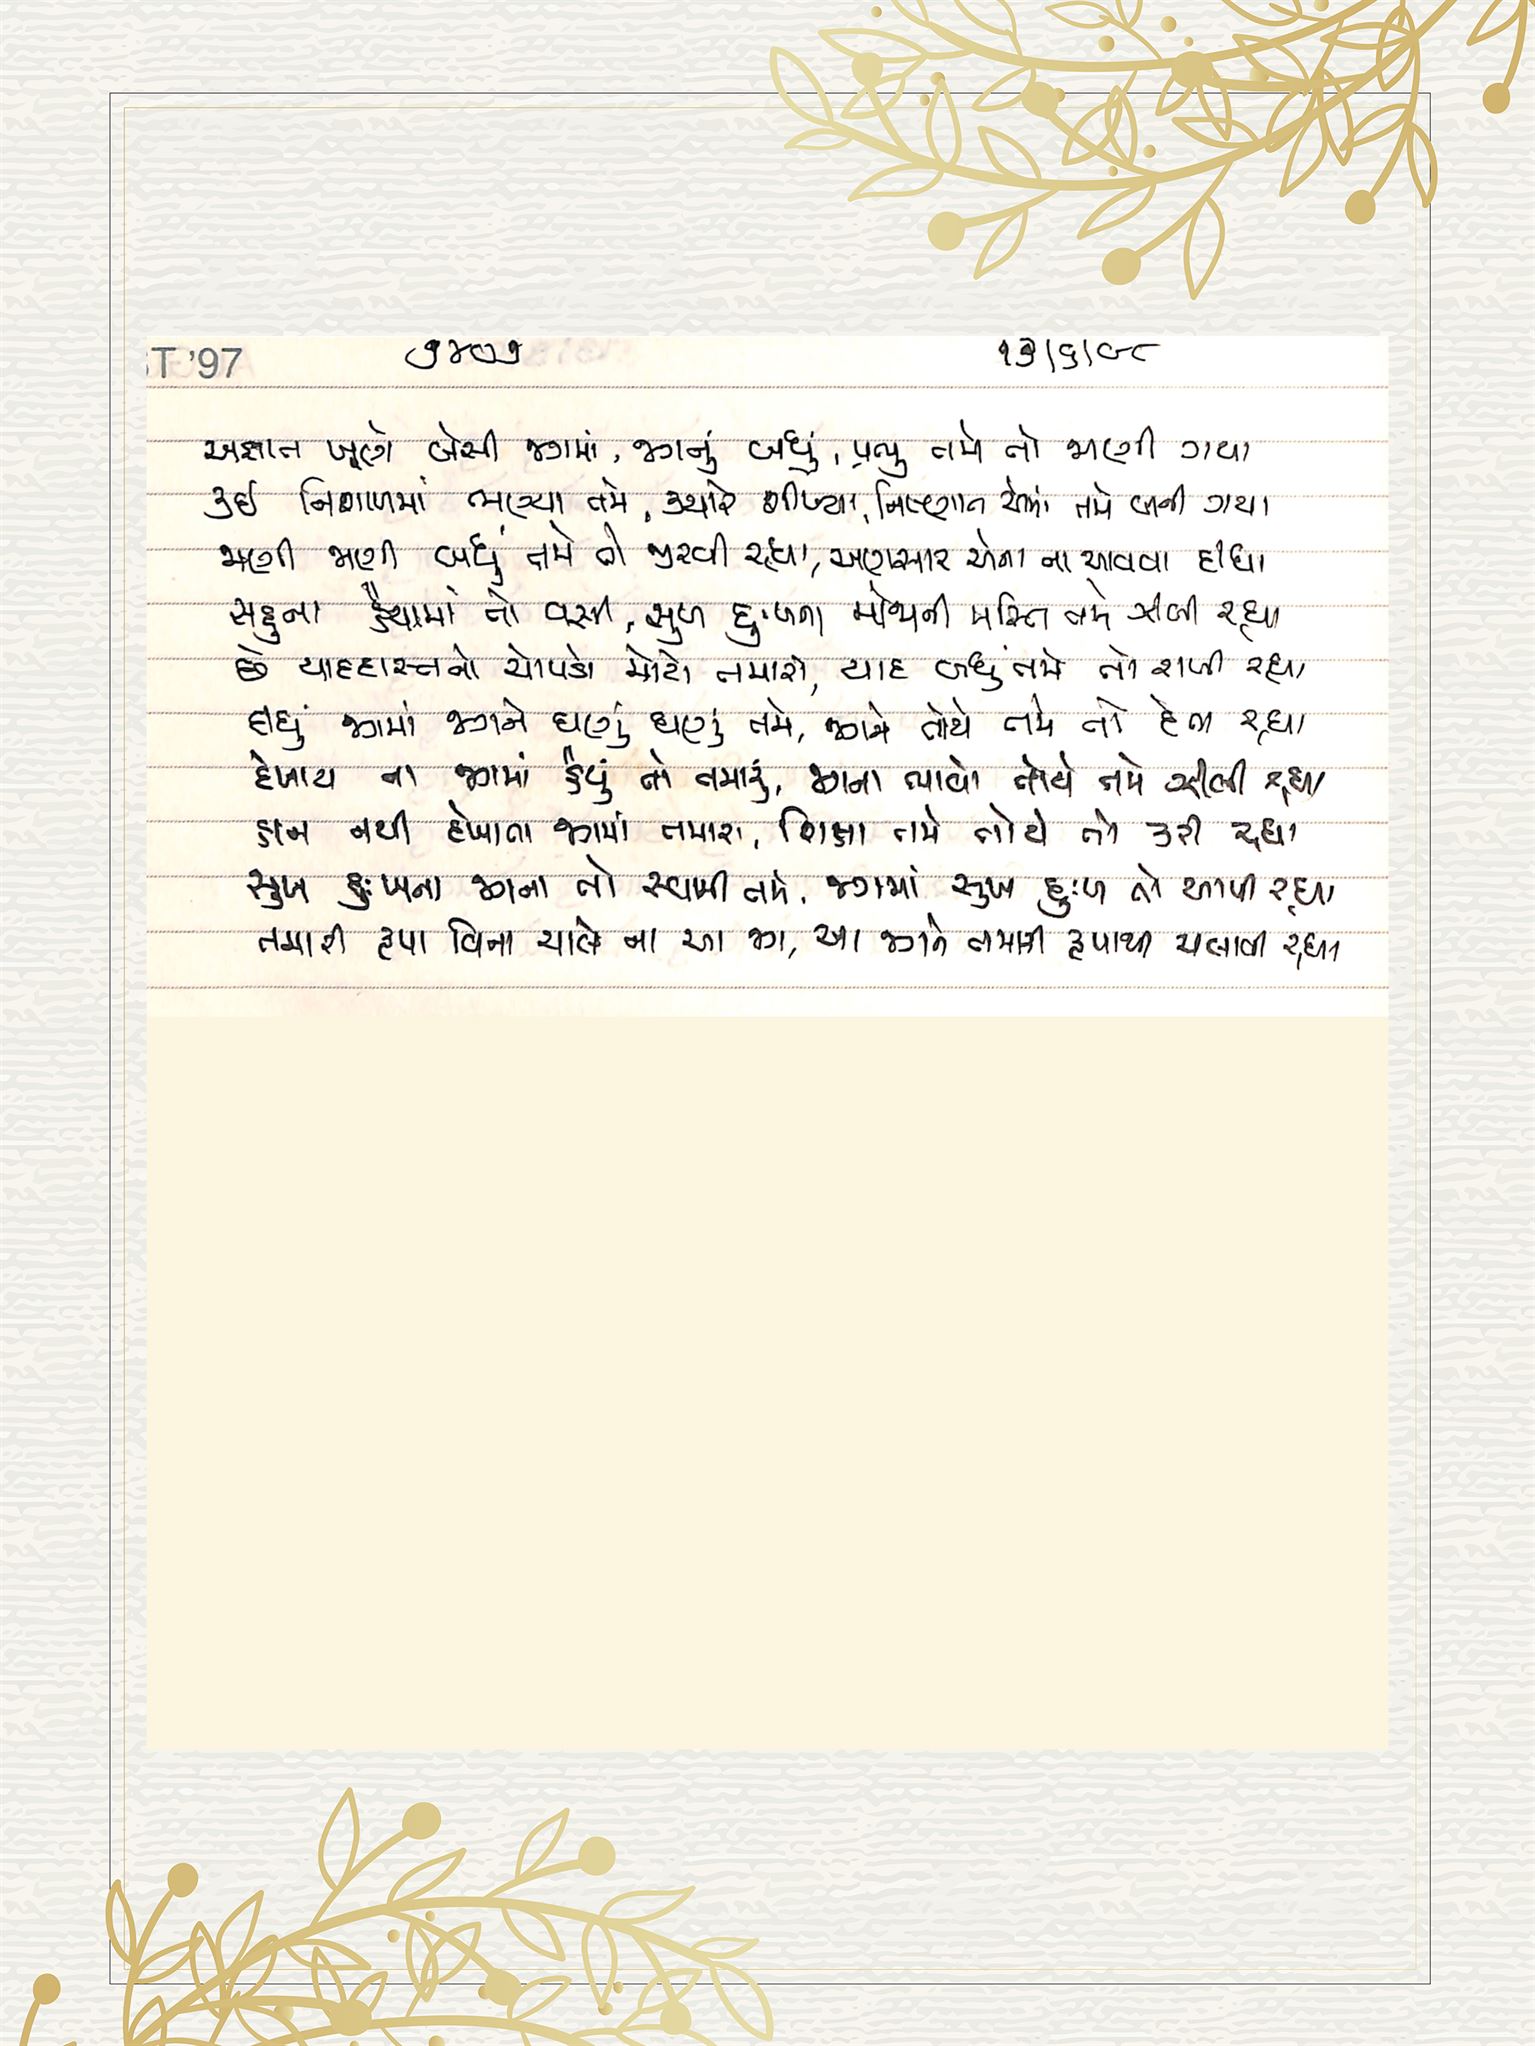 ST '97 ૭૪૦૭ ૧૩/૬/૯૮
અજ્ઞાત ખૂણે બેસી જગમાં, જગનું બધું, પ્રભુ તમે તો ભણી ગયા
કઈ નિશાળમાં ભણ્યા તમે, ક્યારે શીખ્યા, નિષ્ણાત એમાં તમે બની ગયા
ભણી ભણી બધું તમે તો જીરવી રહ્યા, અણસાર એના ના આવવા દીધા
સહુના હૈયામાં તો વસી, સુખ દુઃખના મોજાની મસ્તિ તમે ઝીલી રહ્યા
છે યાદદાસ્તનો ચોપડો મોટો તમારો, યાદ બધું તમે તો રાખી રહ્યા
દીધું જગમાં જગને ઘણું ઘણું તમે, જગને તોયે તમે તો દેતા રહ્યા
દેખાય ના જગમાં હૈયું તો તમારું, જગના ભાવો તોયે તમે ઝીલી રહ્યા
હાથ નથી દેખાતા જગમાં તમારા, શિક્ષા તમે તોયે તો કરી રહ્યા
સુખ દુઃખના જગના તો સ્વામી તમે, જગમાં સુખ દુઃખ તો આપી રહ્યા
તમારી કૃપા વિના ચાલે ના આ જગ, આ જગને તમારી કૃપાથી ચલાવી રહ્યા